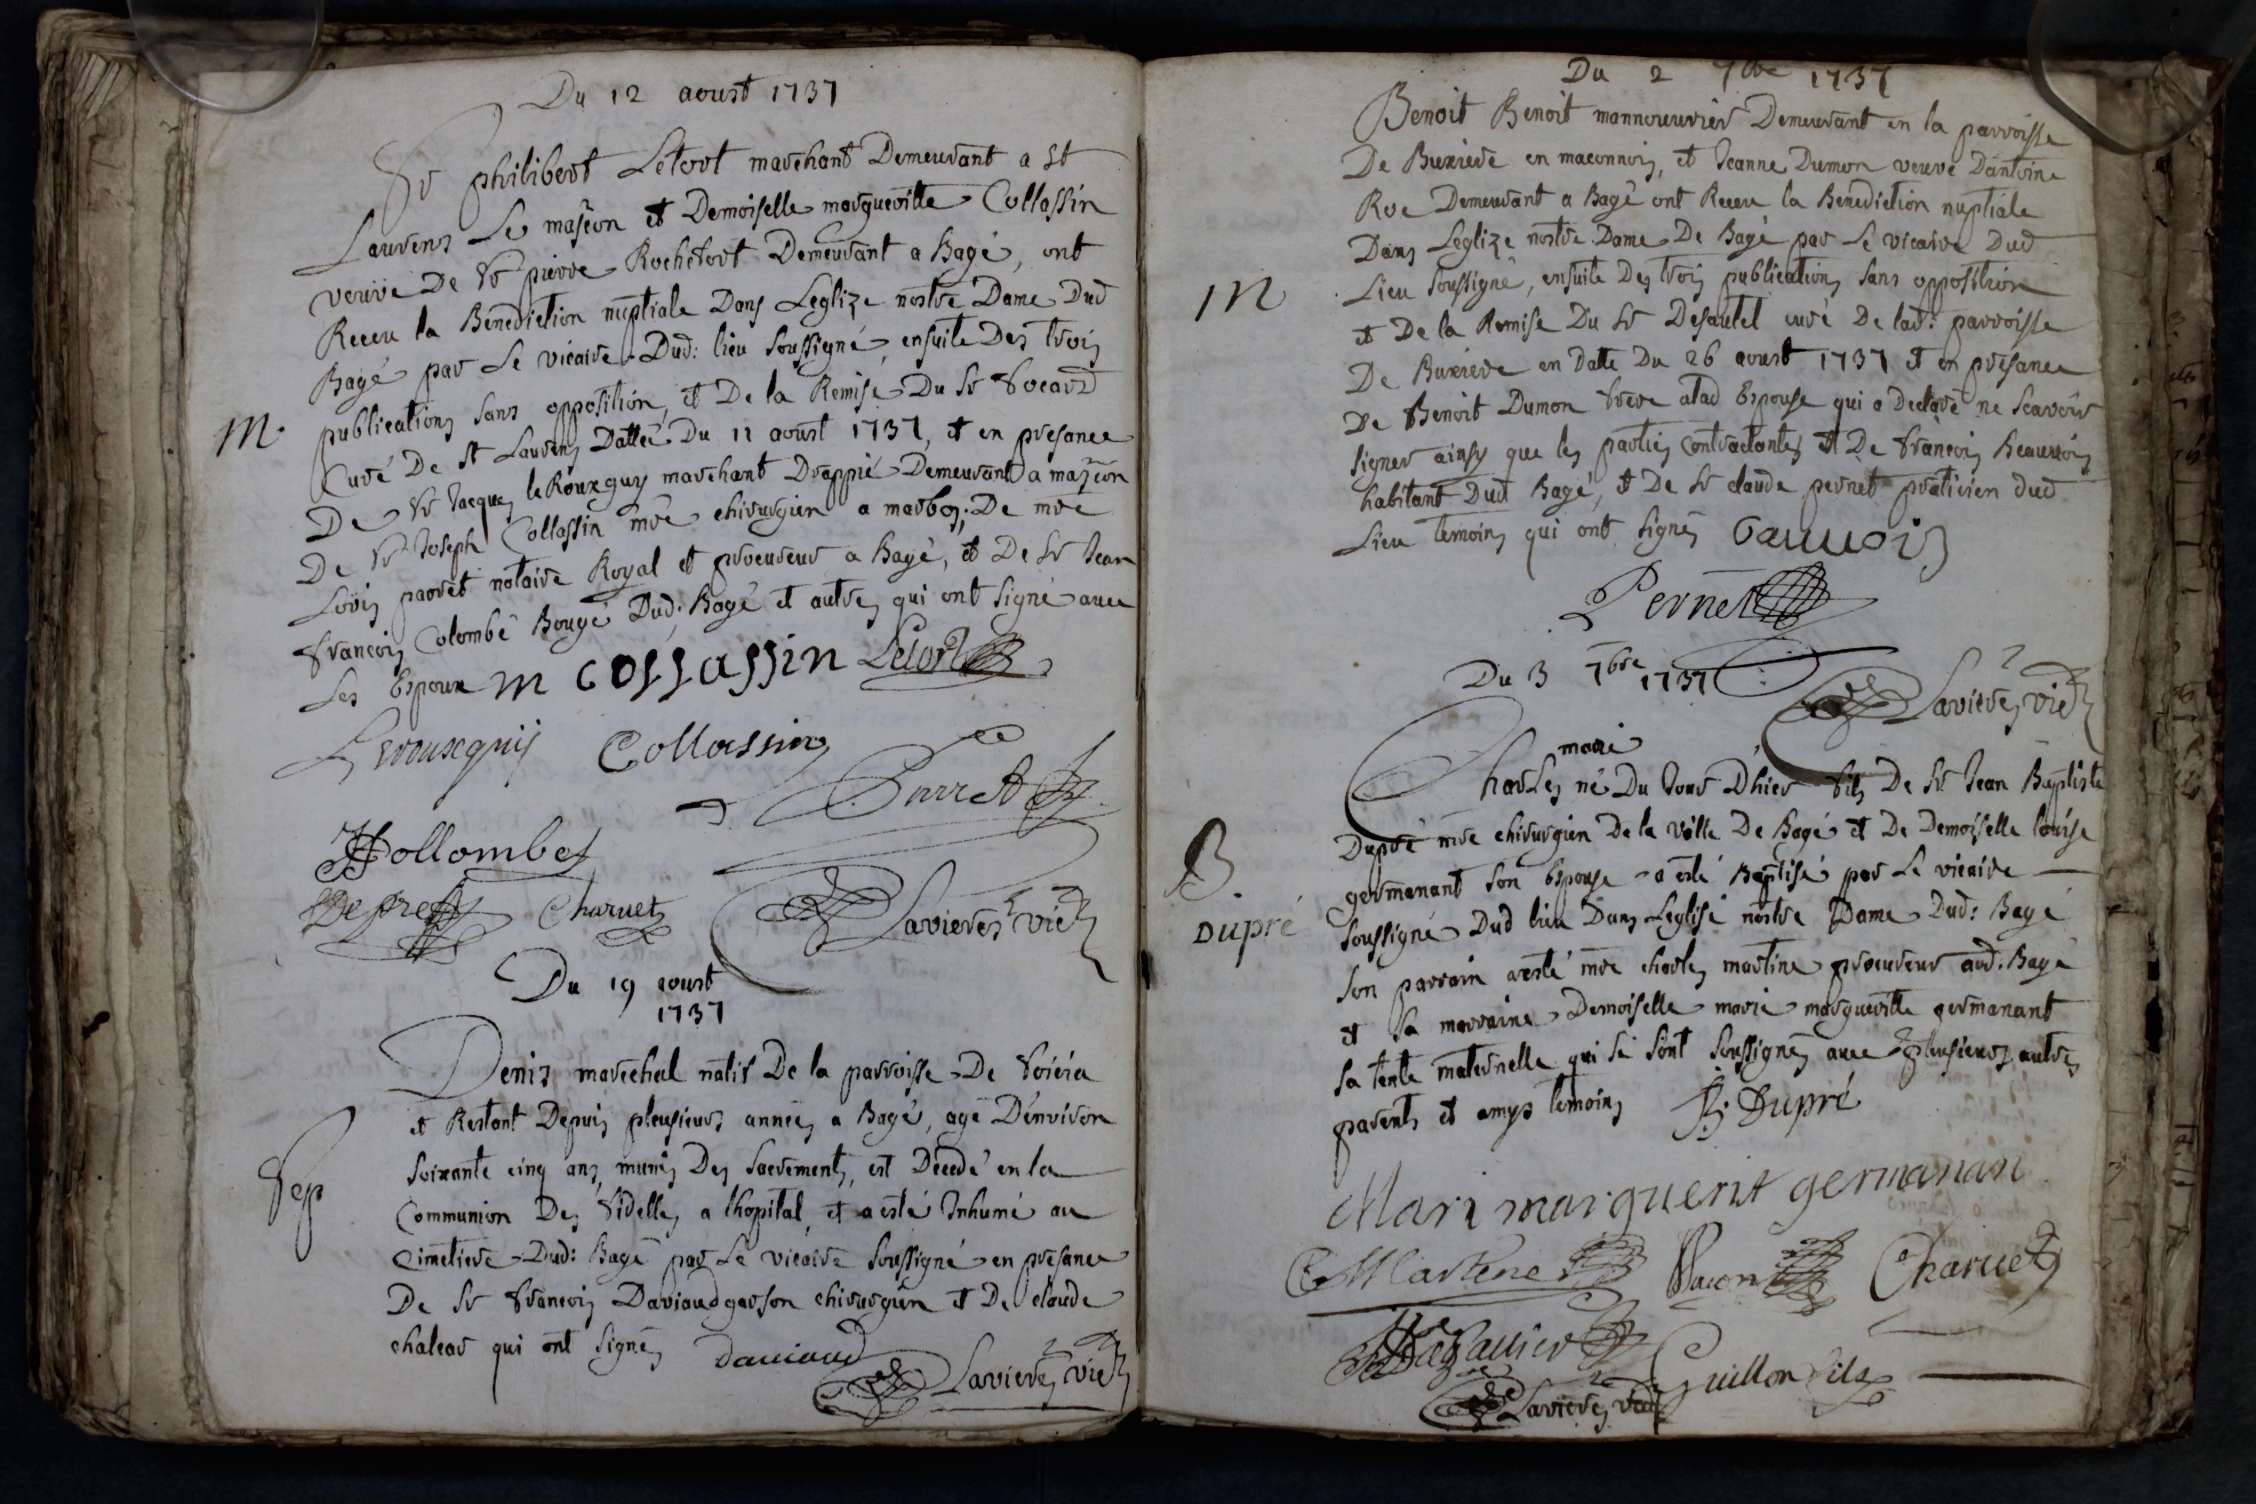 Du 12 aoust 1737
Sr philibert Letort marchant Demeurant a st
Laurens Le mascon et Demoiselle margueritte Collassin
veuve De Sr pierre Rochefort Demeurant a Bagé, ont
Receu la Benediction nuptiale Dans Leglize nostre Dame Dud
Bagé par Le vicaire Dud: lieu soussigné, ensuite Des trois
M. publications sans opposition, et De la Remise Du Sr focard
Curé De st Laurens Dattée Du 11 aoust 1737, et en presance
De Sr Jacques leRouxguy marchant Drappié Demeurant a mascon
De Sr Joseph Collassin mre chirurgien a marboz, De mre
Loüis parret notaire Royal et procureur a Bagé, et De Sr Jean
françois Colombé Bougé Dud: Bagé et autres qui ont signé avec
Les Epoux m collassin Letort
Lerouxguij Collassin
Parret
Hollombet
Depre Charuet Lavieres vic
Du 19 aoust
1737
Denis marechal natif De la parroisse De
et Restant Depuis pleusieurs années a Bagé, agé D'environ
Sep soixante cinq ans, munis Des sacrements, est Decedé en la
Communion Des fidelles a lhopital, et a esté Inhumé au
cimetiere Dud: Bagé par Le vicaire soussigné en presance
De Sr françois Daviaud garson chirurgien et De claude
chalear qui ont signés Dauiaud
Lavieres vic
Du 2 7bre 1737
Benoit Benoit mannoeuvrier Demeurant en la parroisse
De Buxiere en maconnois, et Jeanne Dumon veuve D'antoine
Roe Demeurant a Bagé ont Receu la Benediction nuptiale
Dans Leglize nostre Dame De Bagé par Le vicaire Dud
M Lieu soussigné, ensuite Des trois publications sans opposition
et De la Remise Du Sr Desautel curé De lad: parroisse
De Buxiere en Datte Du 26 aoust 1737 et en presance
De Benoit Dumon frere alad Espouse qui a Declaré ne scavoir
signer ainsy que les parties contractantes et De françois Beauvois
habitant Dud Bagé, et De Sr claude pernet praticien dud
Lieu temoins qui ont signés Bauuois
Pernet
Du 3 7bre 1737
Lavieres vic
marie
Charles né Du Jour D'hier fils De Sr Jean Baptiste
Dupré mre chirurgien De la ville De Bagé et De Demoiselle louise
B. germanant son Espouse a esté Baptisé par Le vicaire
Dupré soussigné Dud lieu Dans Leglise nostre Dame Dud: Bagé
son parrain a esté mre charles martine procureur aud. Bagé
et sa marraine Demoiselle marie margueritte germanant
sa tente maternelle qui se sont soussignés avec pleusieurs autres
parents et amys temoins J: Dupré
Mari marguerit germanan
C Martene Charuet
Guillon fils
Lavieres vic